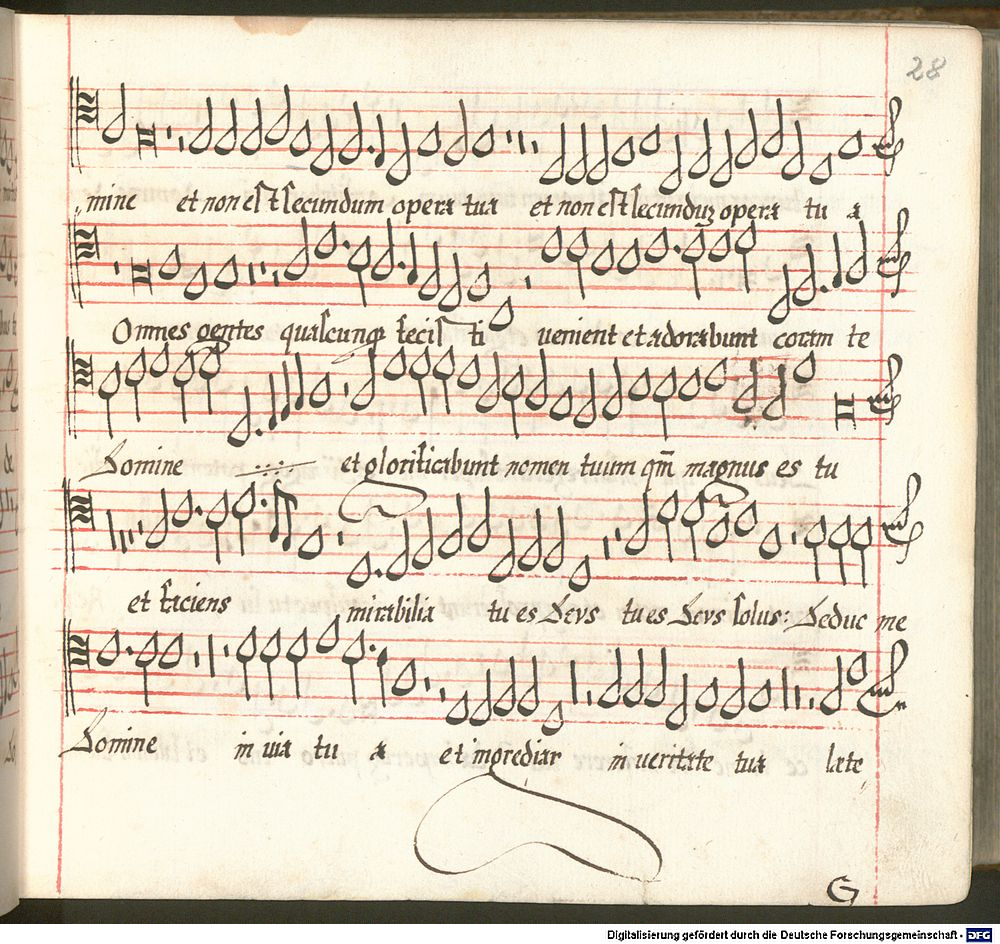 28
mine et non est secundum opera tua et non est secunduz opera tu a
Omnes gentes quascunq fecis ti uenient et adorabunt coram te
Domine et glorificabunt nomen tuum qm̄ magnus es tu
et faciens mirabilia tu es Deus tu es Deus solus: Deduc me
Domine in uia tu a et ingrediar in ueritate tua læte
G
Digitalisierung gefördert durch die Deutsche Forschungsgemeinschaft - DFG